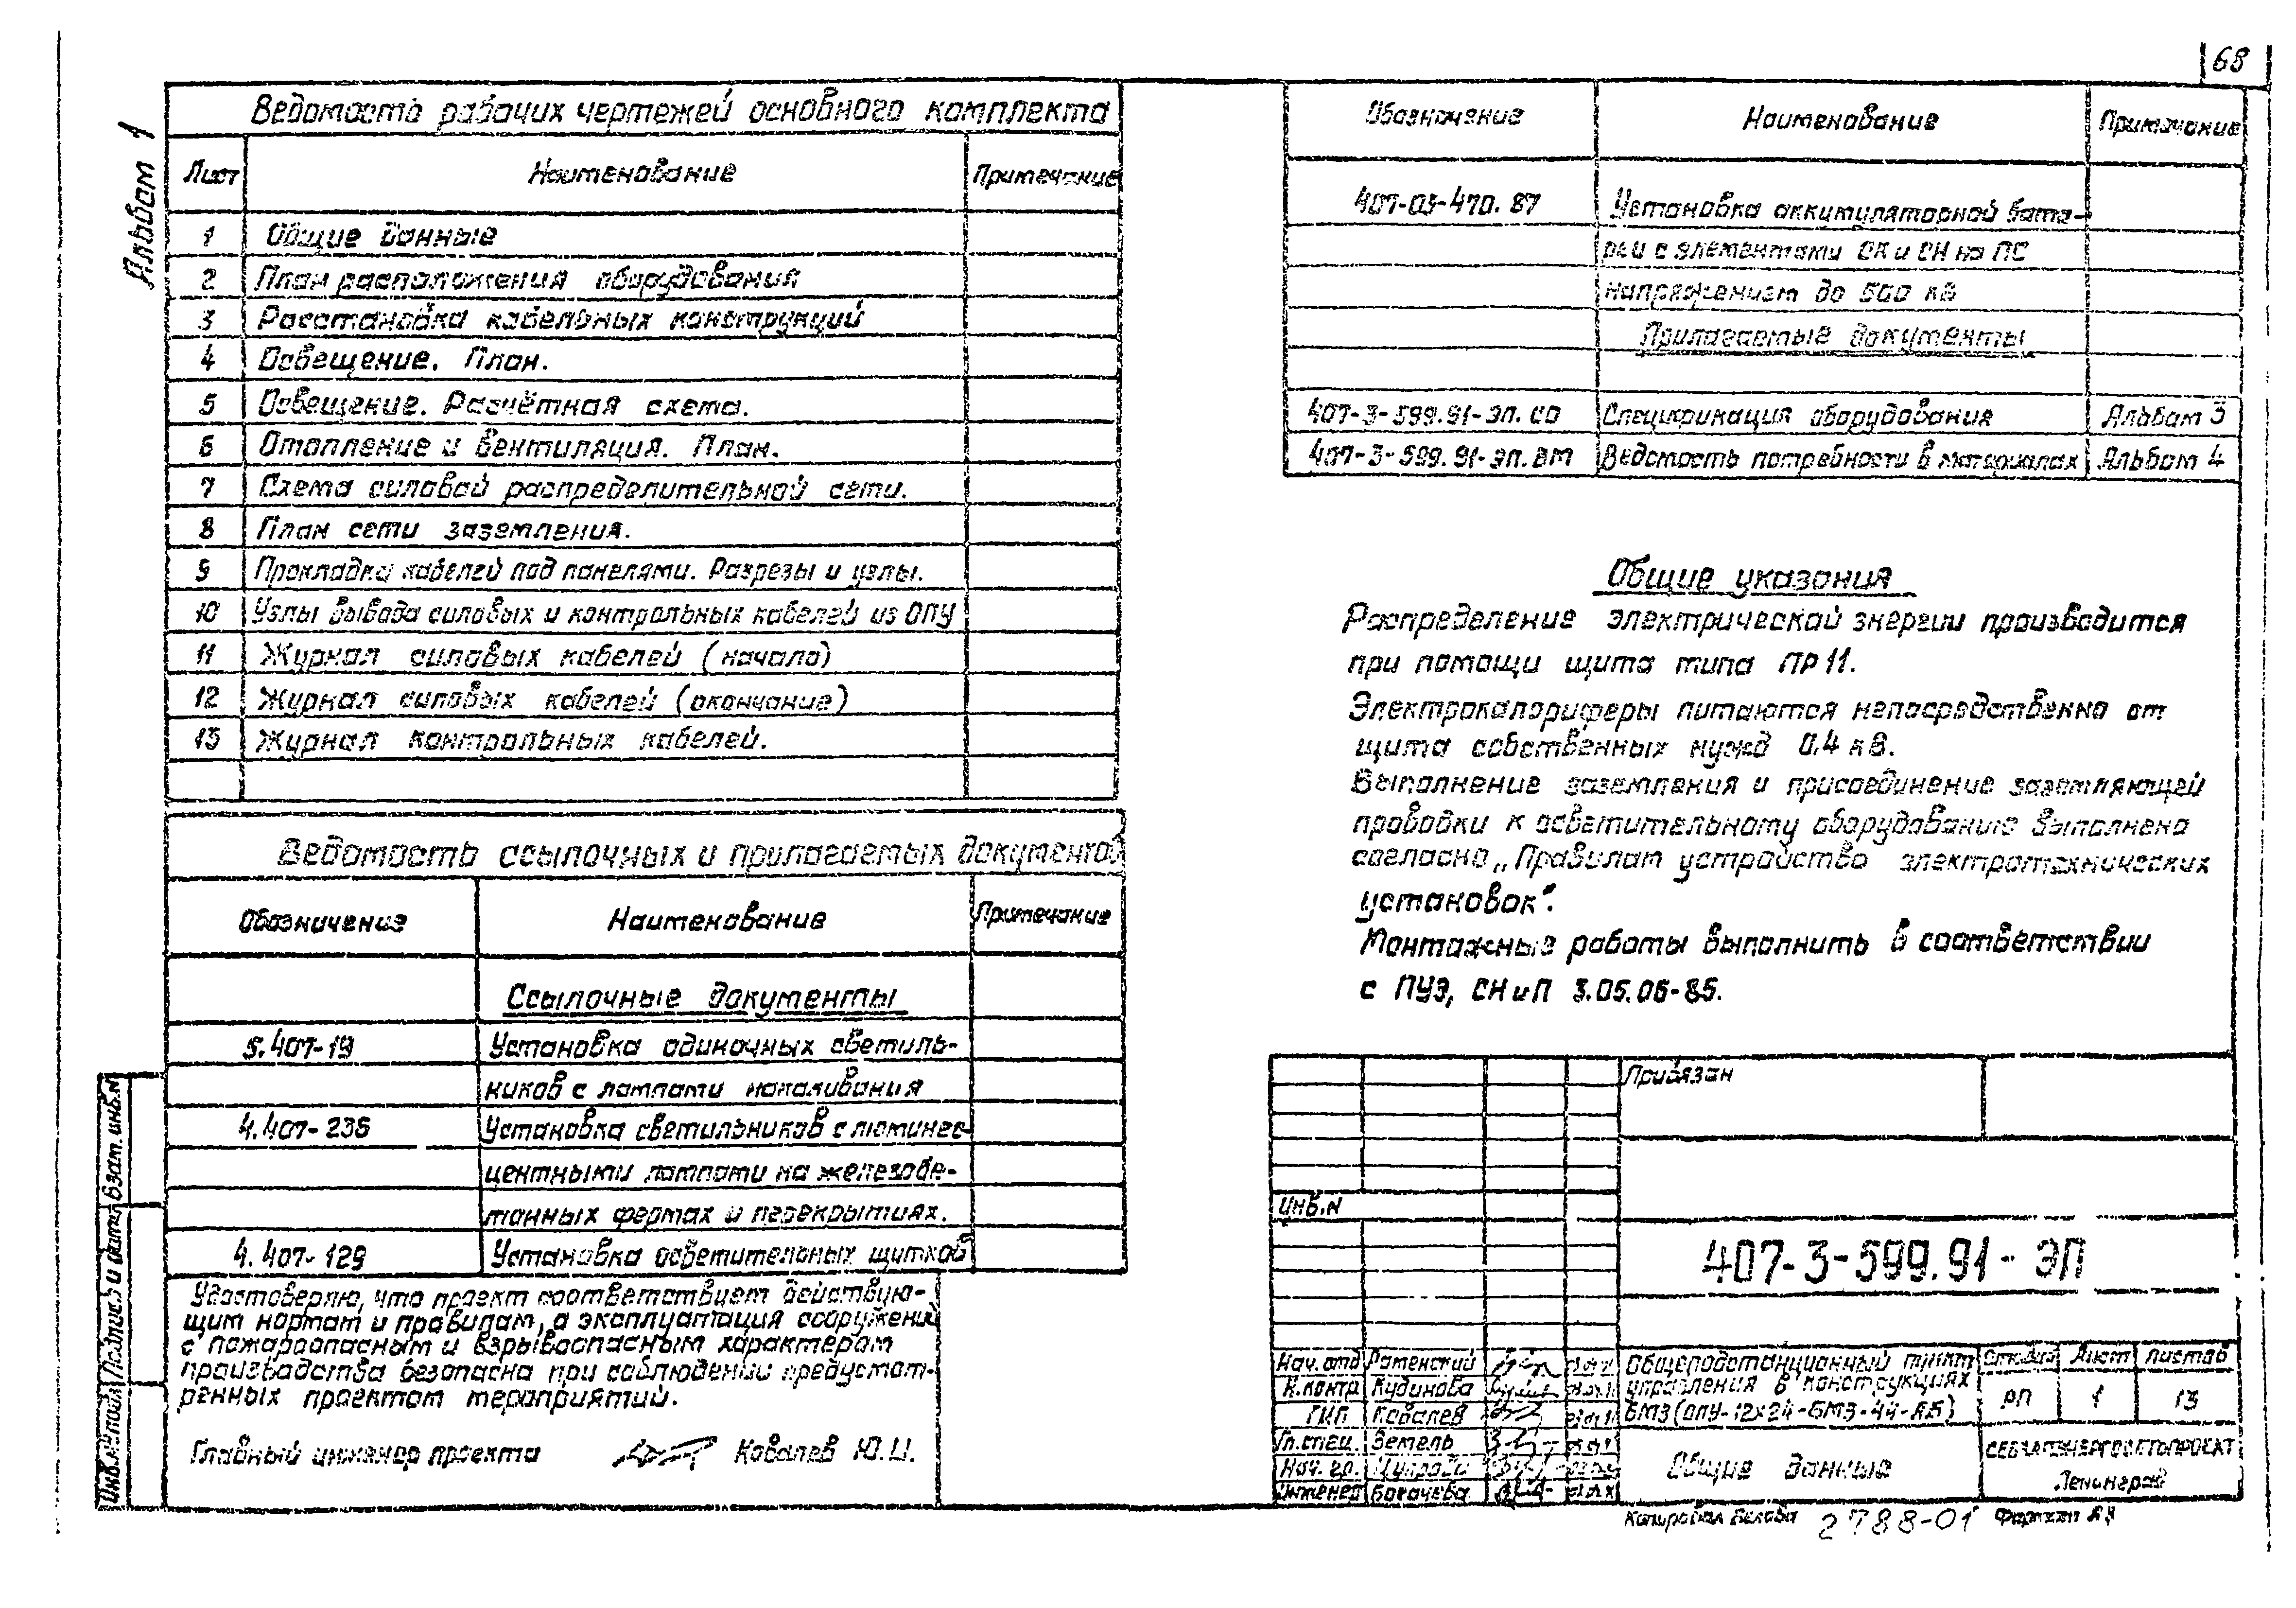 68
Альбом 1
Ведомость рабочих чертежей основного комплекта
Лист Наименование Примечание
1 Общие данные
2 План расположения оборудования
3 Расстановка кабельных конструкций
4 Освещение. План.
5 Освещение. Расчётная схема.
6 Отопление и вентиляция. План.
7 Схема силовой распределительной сети.
8 План сети заземления.
9 Прокладка кабелей под панелями. Разрезы и узлы.
10 Узлы вывода силовых и контрольных кабелей из ОПУ
11 Журнал силовых кабелей (начало)
12 Журнал силовых кабелей (окончание)
13 Журнал контрольных кабелей.
Ведомость ссылочных и прилагаемых документов
Обозначение Наименование Примечание
Ссылочные документы
5.407-19 Установка одиночных светиль-
ников с лампами накаливания
4.407-236 Установка светильников с люминес-
центными лампами на железобе-
тонных фермах и перекрытиях.
4.407-129 Установка осветительных щитков
Удостоверяю, что проект соответствует действую-
щим нормам и правилам, а эксплуатация сооружений
с пожароопасным и взрывоопасным характером
производства безопасна при соблюдении предусмот-
ренных проектом мероприятий.
Главный инженер проекта Ковалев Ю.И.
Инв.№ подл. Подпись и дата Взам. инв.N
Обозначение Наименование Примечание
407-03-470.87 Установка аккумуляторной бата-
реи с элементами СК и СН на ПС
напряжением до 500 кВ
Прилагаемые документы
407-3-599.91-ЭП.СО Спецификация оборудования Альбом 3
407-3-599.91-ЭП.ВМ Ведомость потребности в материалах Альбом 4
Общие указания
Распределение электрической энергии производится
при помощи щита типа ПР 11.
Электрокалориферы питаются непосредственно от
щита собственных нужд 0.4 кВ.
Выполнение заземления и присоединение заземляющей
проводки к осветительному оборудованию выполнено
согласно „Правилам устройство электротехнических
установок".
Монтажные работы выполнить в соответствии
с ПУЭ, СНиП 3.05.06-85.
Привязан
Инв.N
407-3-599.91 - ЭП
Нач. отд Раменский
Н.контр Кудинова
ГИП Ковалев
Гл.спец. Земель
Нач. гр.
Инженер Богачева
Общеподстанционный пункт
управления в конструкциях
БМЗ (ОПУ-12x24-БМЗ-44-АБ)
Стадия Лист Листов
РП 1 13
Общие данные
СЕВЗАПЭНЕРГОСЕТЬПРОЕКТ
Ленинград
Копировал Белова 2788-01 Формат А3